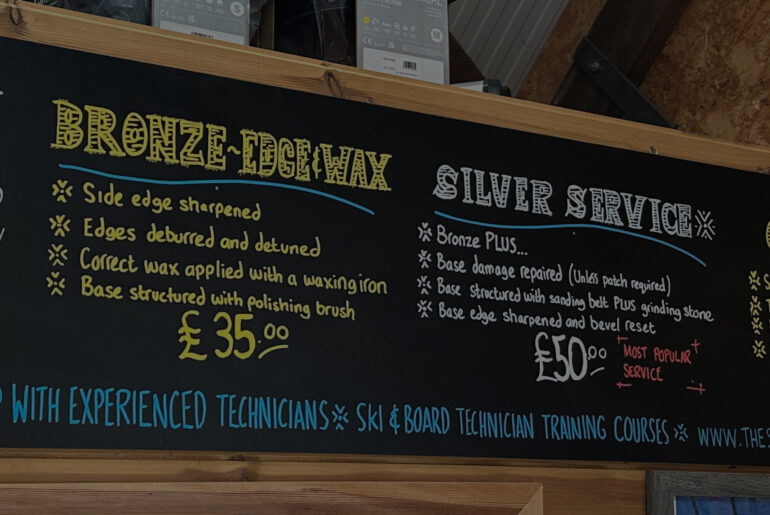 BRONZE~EDGE&WAX
Side edge sharpened
Edges deburred and detuned
Correct wax applied with a waxing iron
Base structured with polishing brush
£35.00
SILVER SERVICE
Bronze PLUS...
Base damage repaired (Unless patch required)
Base structured with sanding belt PLUS grinding stone
Base edge sharpened and bevel reset
£50.00
MOST POPULAR
SERVICE
WITH EXPERIENCED TECHNICIANS SKI & BOARD TECHNICIAN TRAINING COURSES WWW.THES